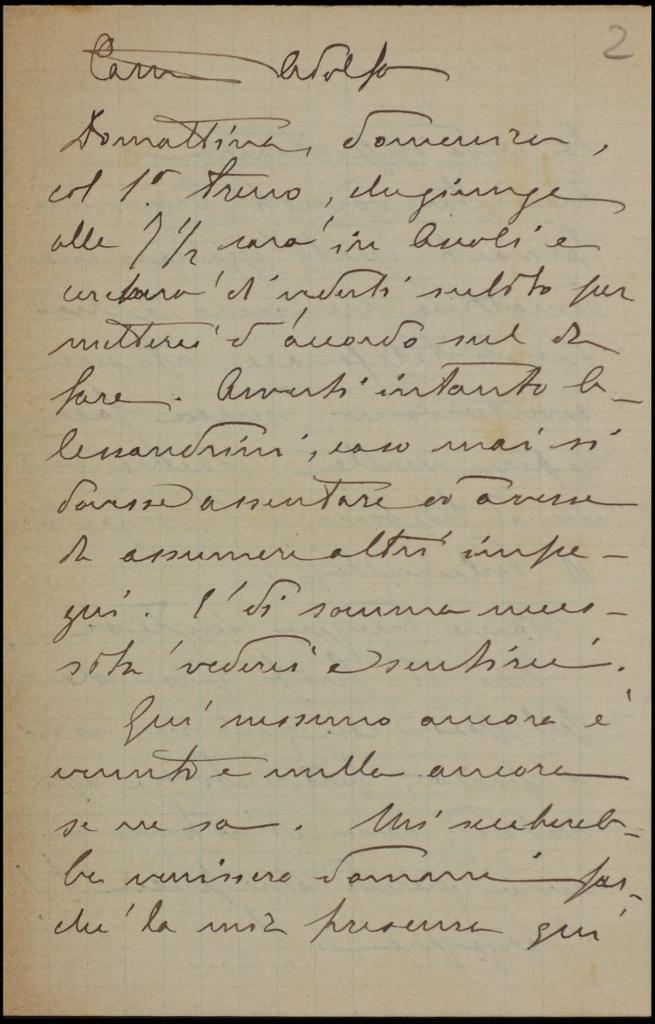 2
Caro Adolfo
Domattina, domenica,
col 1.º treno, che giunge
alle 7 1/2 sarò in Ascoli e
cercherò di vederti subito per
metterci d'accordo sul da
fare. Avverti intanto A-
lessandrini, caso mai si
dovesse assentare od avesse
da assumere altri impe-
gni. È di somma neces-
sità vederci e sentirci.
Qui nessuno ancora è
venuto e nulla ancora
se ne sa. Mi secchereb-
be venissero domani per-
ché la mia presenza qui